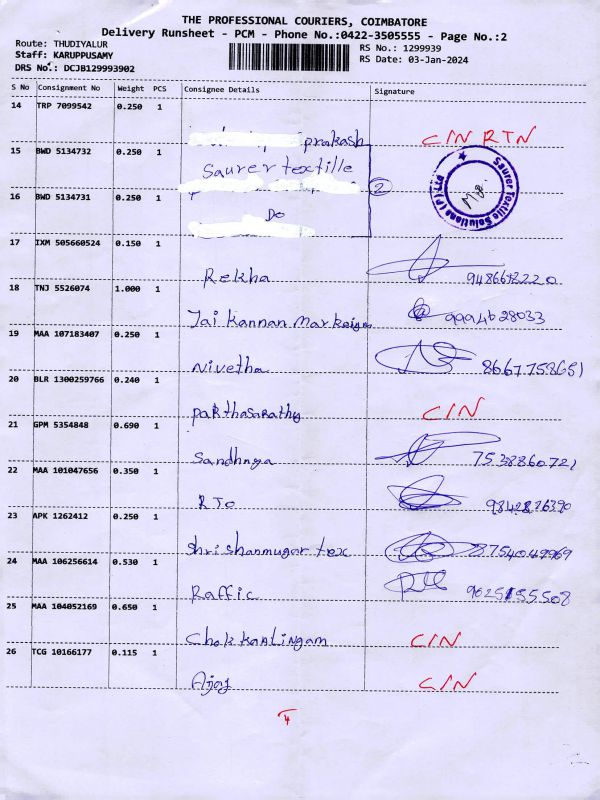 THE PROFESSIONAL COURIERS, COIMBATORE
Delivery Runsheet - PCM - Phone No.:0422-3505555 - Page No.:2
Route: THUDIYALUR
Staff: KARUPPUSAMY
DRS No.: DCJB129993902
RS No.: 1299939
RS Date: 03-Jan-2024
S No Consignment No Weight PCS Consignee Details Signature
14 TRP 7099542 0.250 1
prakash C/N RTN
15 BWD 5134732 0.250 1
Saurer textille
2
Saurer Textile Solutions (P) Ltd
16 BWD 5134731 0.250 1
Do
17 IXM 505660524 0.150 1
Rekha
18 TNJ 5526074 1.000 1
Jai Kannan 9994628033
19 MAA 107183407 0.250 1
Nivetha 8667758651
20 BLR 1300259766 0.240 1
parthasarathy C/N
21 GPM 5354848 0.690 1
Sandhnya 7538860721
22 MAA 101047656 0.350 1
RTO
23 APK 1262412 0.250 1
Shrishanmugar tex
24 MAA 106256614 0.530 1
Raffic
25 MAA 104052169 0.650 1
Chokkanlingam C/N
26 TCG 10166177 0.115 1
Ajay C/N
4